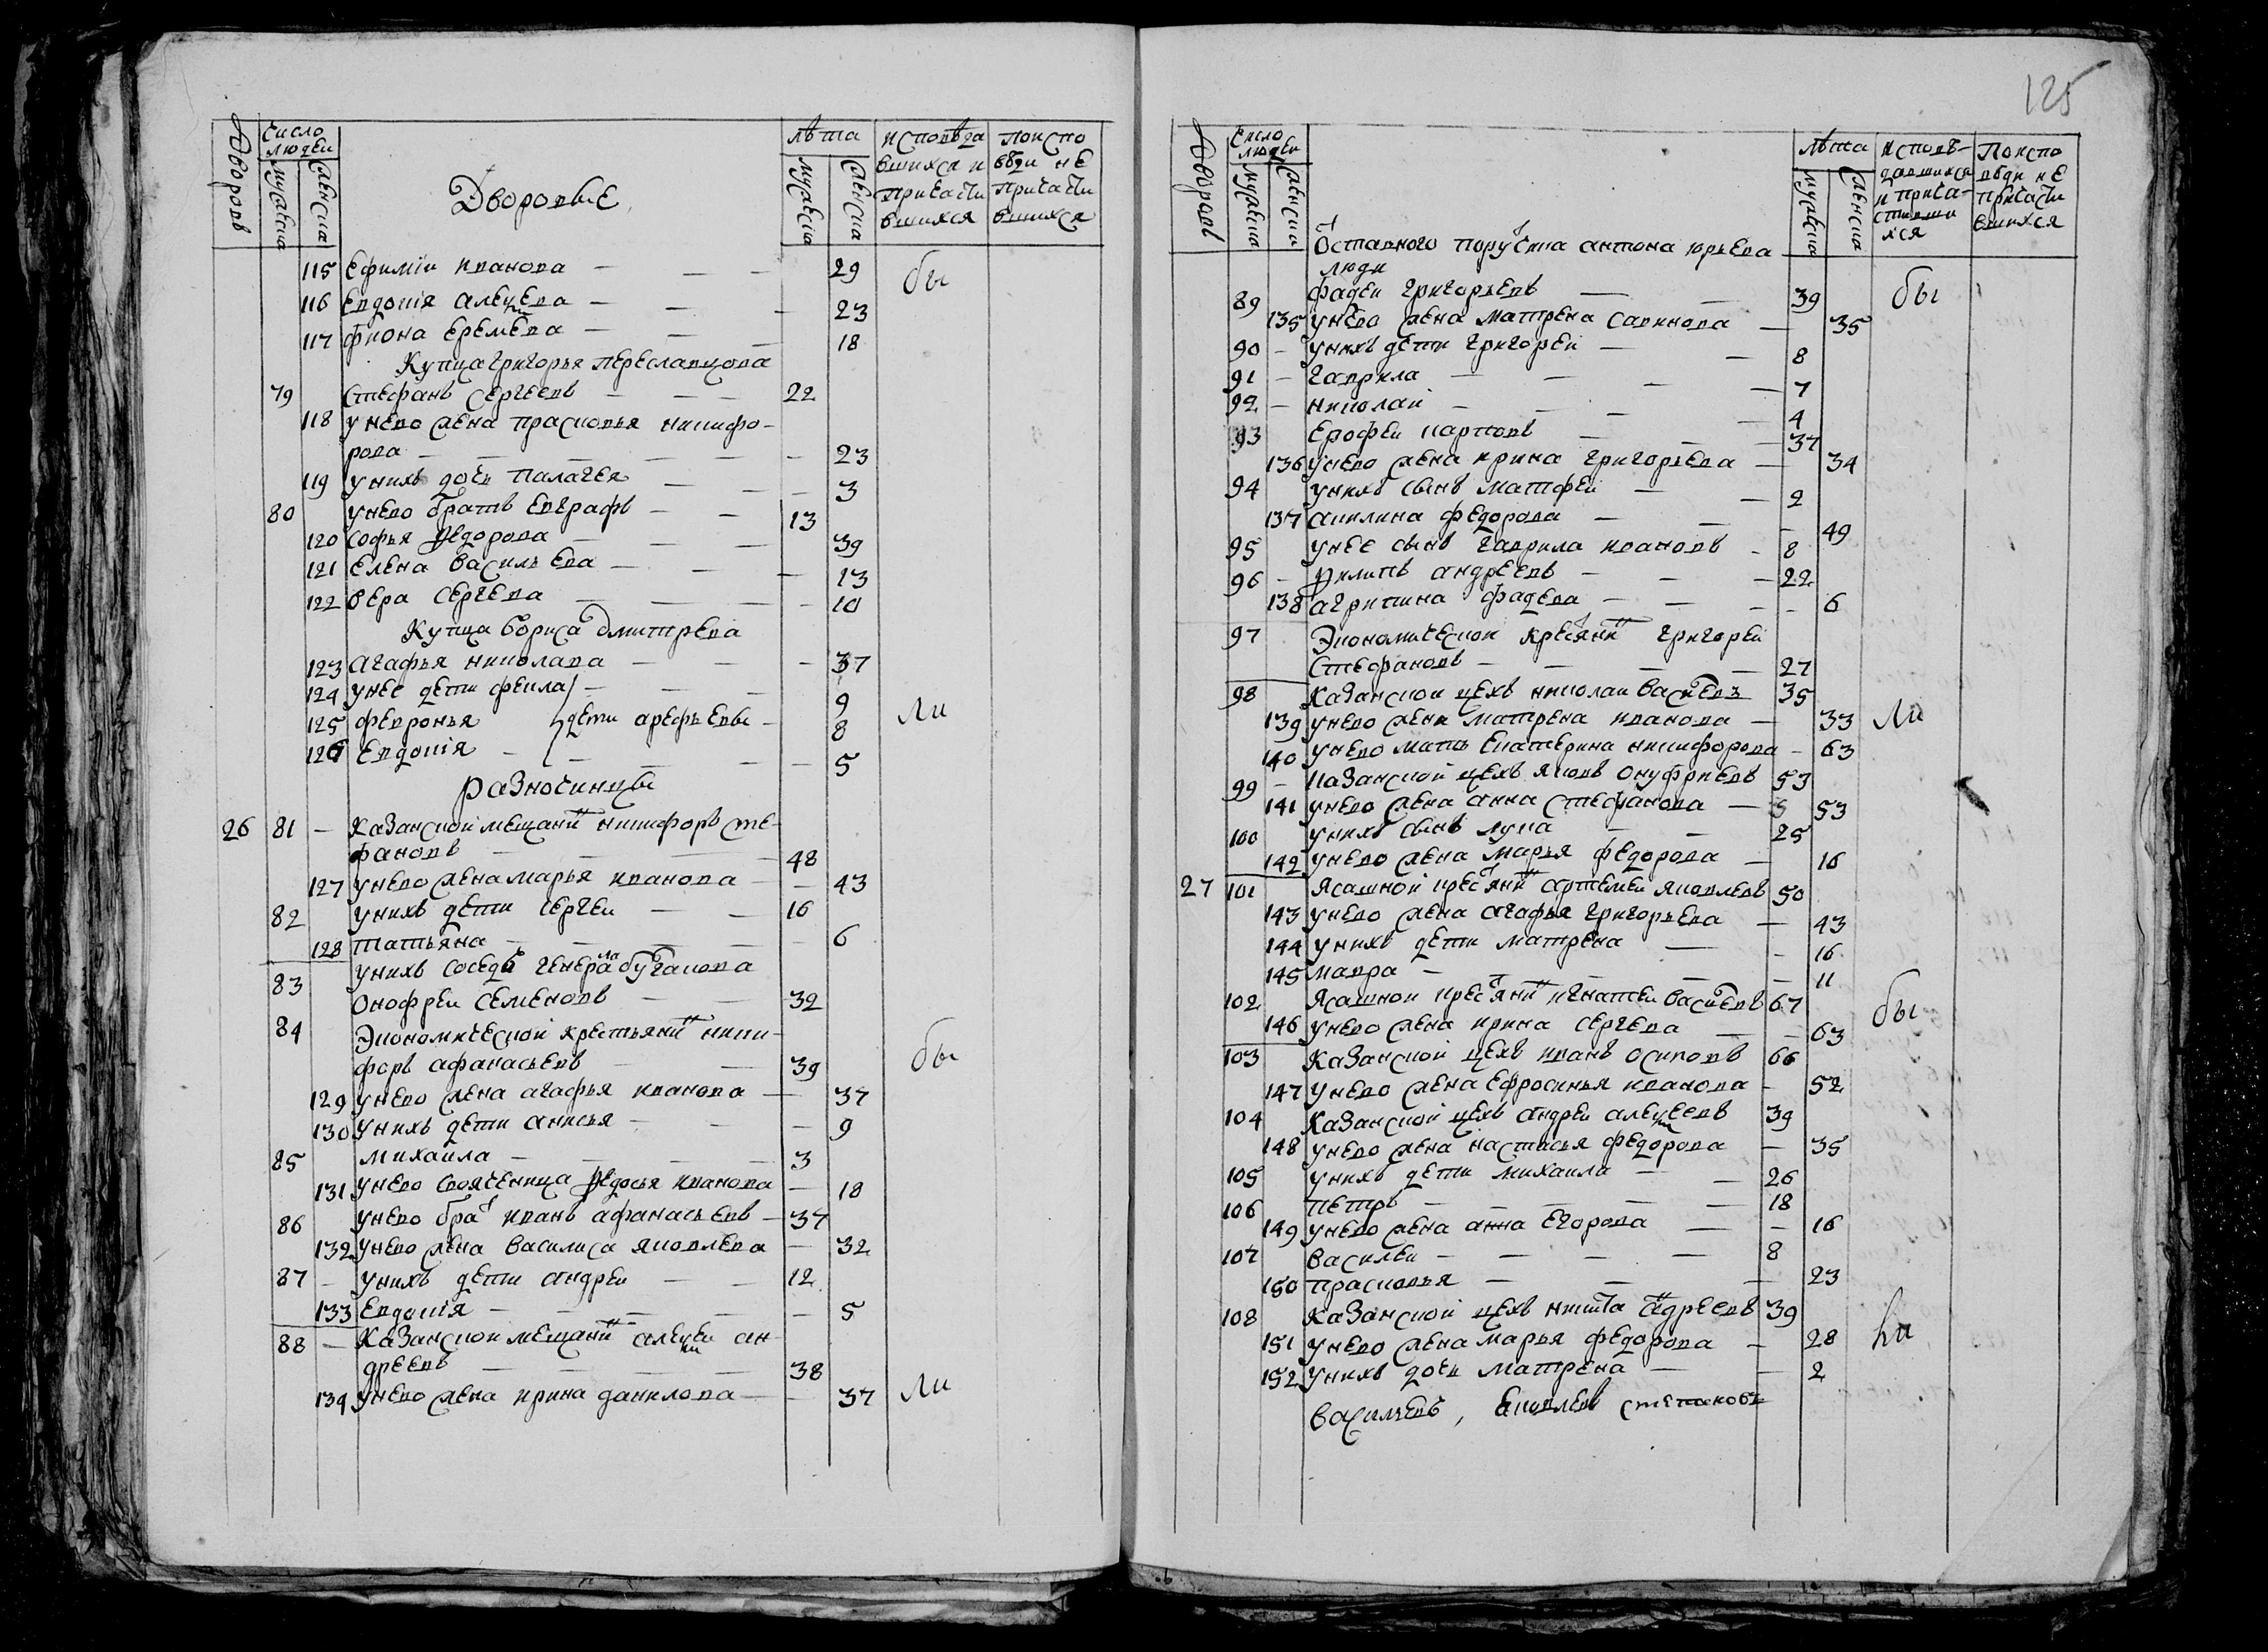 Дворовъ
Число людей
мужеска
женска
Дворовые
лѣта
мужеска
женска
исповѣдавшихся и причастившихся
по исповѣди не причастившихся
115 Ефимiи иванова — — — 29 бы
116 Евдокiя алеѯѣева — — 23
117 фиона Еремѣева — — 18
Купца григорья переславцова
79 Стефанъ Сергеевъ — — 22
118 у него жена прасковья никифо-
рова — — — — 23
119 у нихъ дочь палагея — — 3
80 у него братъ Евграфъ — — 13
120 Софья Федорова — — — 39
121 Елена васильева — — — 13
122 вера Сергева — — — 10
Купца бориса дмитрева
123 агафья николава — — — 37
124 у нее дети фекла — — 9 ли
125 февронья дети арефьевы — 8
126 Евдокiя — — — 5
разночинцы
26 81 — Казанской мещанинъ никифоръ сте-
фановъ — — — 48
127 у него жена марья иванова — — 43
82 у нихъ дети сергеи — — 16
128 татьяна — — — 6
83 у нихъ соседъ генерала булгакова
онофреи семеновъ — — 32
84 Экономической крестьянинъ ники-
форъ афанасьевъ — — 39 бы
129 у него жена агафья иванова — 37
130 у нихъ дети анисья — — 9
85 михаила — — — 3
131 у него своячемица федосья иванова — 18
86 у него братъ иванъ афанасьевъ — 37
132 у него жена василиса яковлева — 32
87 — у нихъ дети андреи — — 12
133 Евдокiя — — — 5
88 — Казанской мещанинъ алеѯеи ан-
дреевъ — — — 38
134 у него жена ирина данилова — — 37 ли
125
Дворовъ
Число людей
мужеска
женска
лѣта
мужеска
женска
исповѣдавшихся и причастившихся
по исповѣди не причастившихся
отставного порутчика антона юрьева
люди
89 фадеи григорьевъ — — 39 бы
135 у него жена матрена савинова — 35
90 — у нихъ дети григореи — — 8
91 — гаврила — — — 7
92 — николаи — — — 4
93 Ерофеи карповъ — — 37
136 у него жена ирина григорьева — 34
94 у нихъ сынъ матфеи — — 2
137 акилина федорова — — 49
95 у нее сынъ гаврила ивановъ — 8
96 — филипъ андреевъ — — 22
138 агрипина фадева — — — 6
97 Экономической крестьянинъ григореи
Стефановъ — — — 27
98 Казанской цехъ николаи васильевъ 35
139 у него жена матрена иванова — 33 ли
140 у него мать Екатерина никифорова — 63
99 — казанской цехъ яковъ онуфриевъ 53
141 у него жена анна стефанова — 53
100 у нихъ сынъ лука — — 25
142 у него жена марья федорова — 16
27 101 Ясашной крестьянинъ артемеи яковлевъ 50
143 у него жена агафья григорьева — 43
144 у нихъ дети матрена — — 16
145 мавра — — — 11
102 Ясашной крестьянинъ игнатеи васильевъ 67 бы
146 у него жена ирина сергева — — 63
103 Казанской цехъ иванъ осиповъ 66
147 у него жена Ефросинья иванова — 52
104 Казанской цехъ андреи алеѯеевъ 39
148 у него жена настасья федорова — 35
105 у нихъ дети михаила — — 26
106 петръ — — — 18
149 у него жена анна Егорова — — 16
107 василеи — — — — 8
150 прасковья — — — 23
108 Казанской цехъ никита андреевъ 39
151 у него жена марья федорова — 28 ли
152 у нихъ дочь матрена — — 2
васильевъ, степановъ